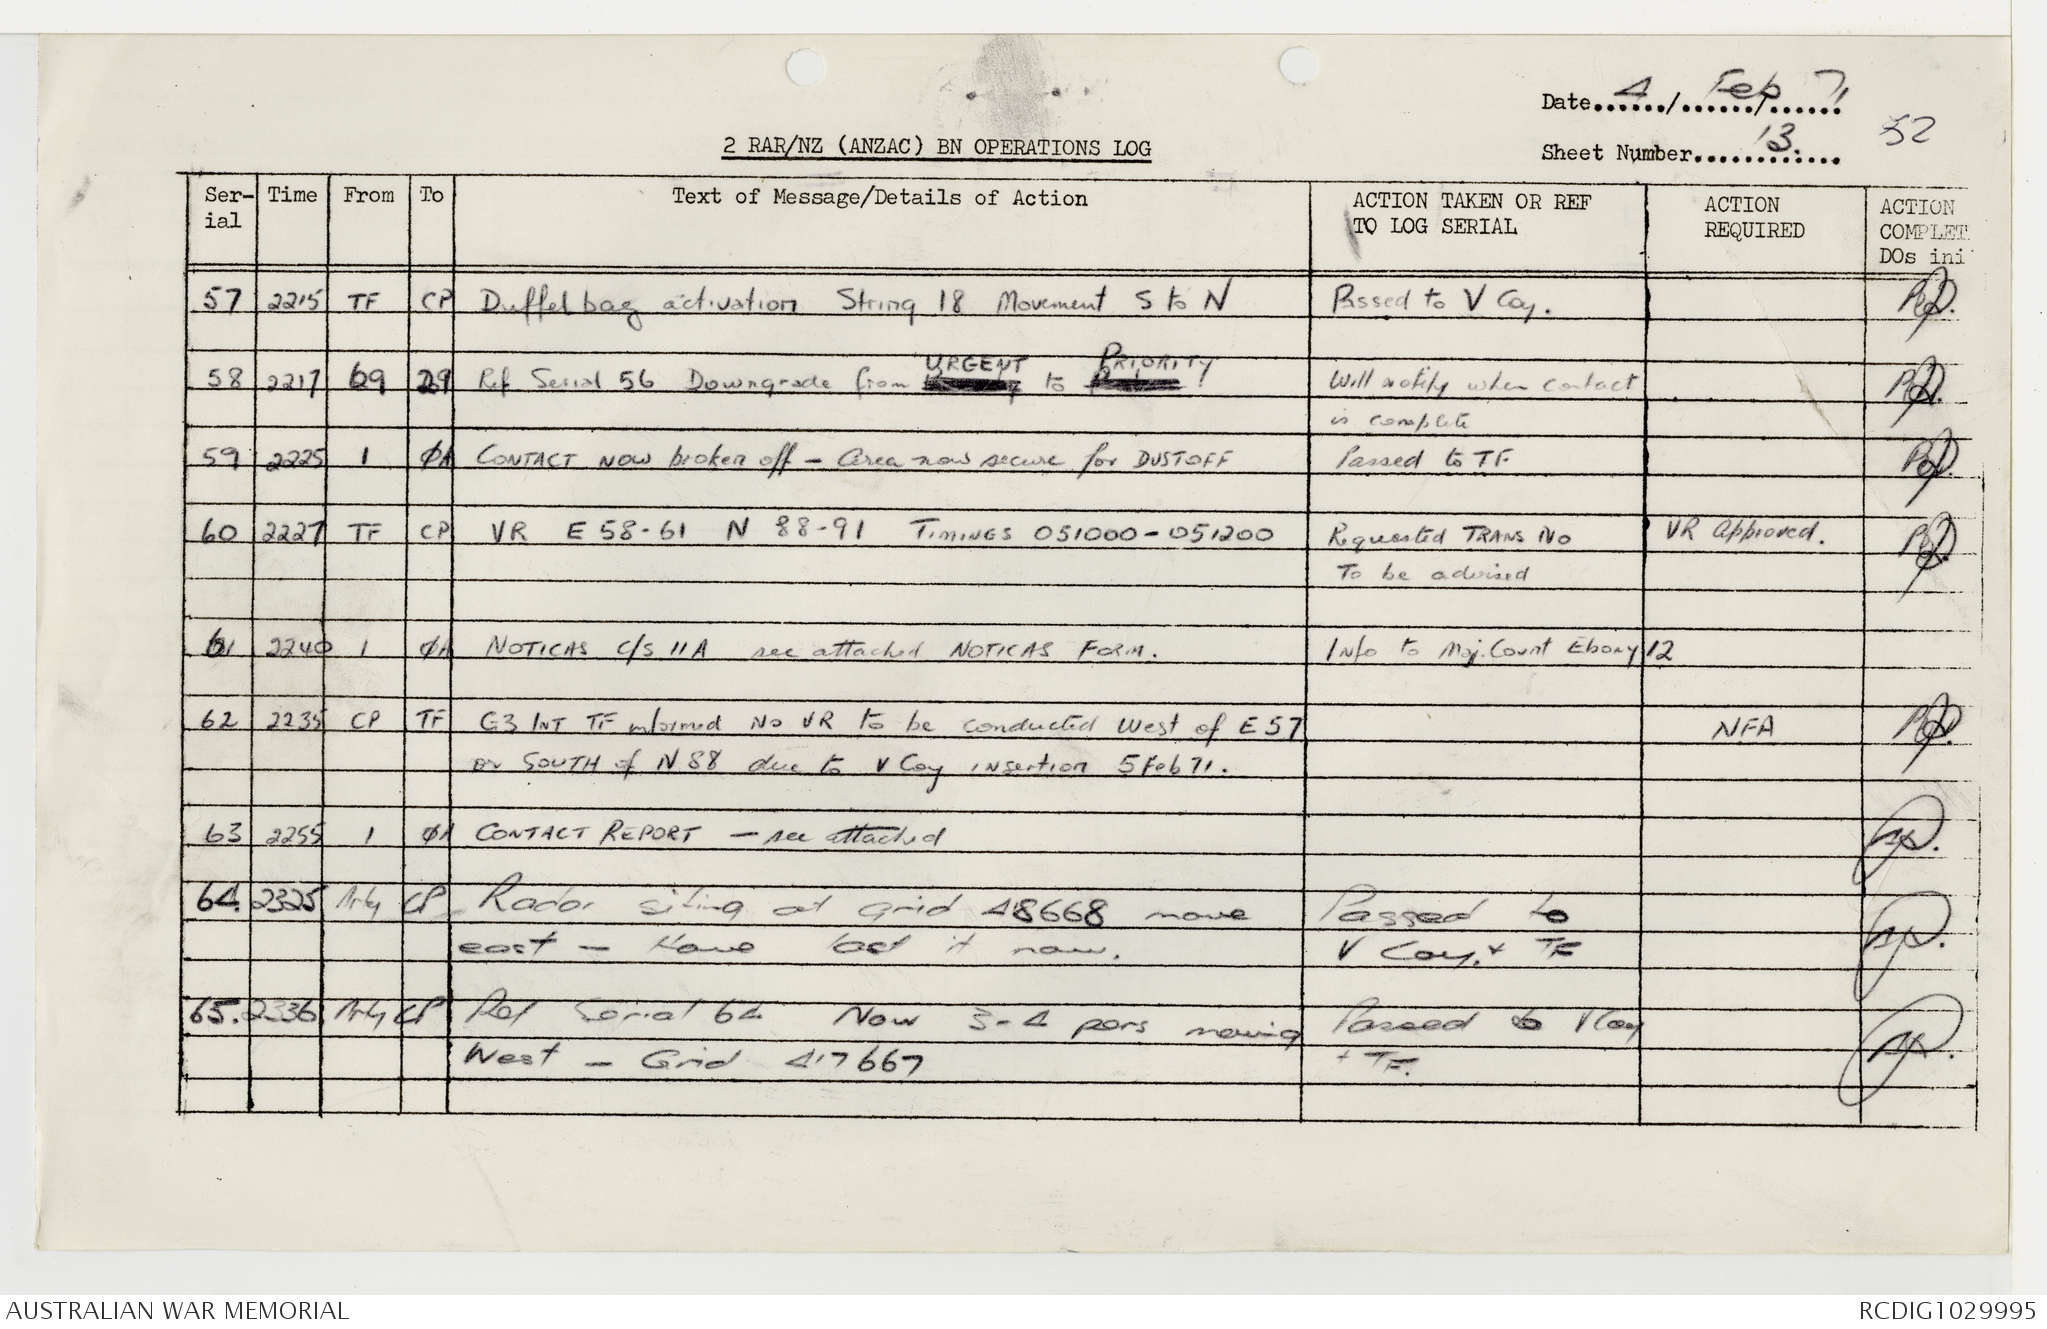 Date 4/Feb/71
52
2 RAR/NZ (ANZAC) BN OPERATIONS LOG
Sheet Number 13.
Ser- Time From To Text of Message/Details of Action ACTION TAKEN OR REF ACTION ACTION
ial TO LOG SERIAL REQUIRED COMPLET
DOs ini
57 2215 TF CP Duffelbag activation String 18 Movement S to N Passed to V Coy.
URGENT PRIORITY
58 2217 69 29 Ref Serial 56 Downgrade from to Will notify when contact
is complete
59 2225 1 ØA CONTACT NOW broken off - Area now secure for DUSTOFF Passed to TF
60 2227 TF CP VR E 58-61 N 88-91 TIMINGS 051000-051200 Requested TRANS NO VR Approved.
To be advised
61 2240 1 ØA NOTICAS C/S 11A see attached NOTICAS FORM. Info to Maj. Count Ebony 12
62 2235 CP TF G3 INT TF informed NO VR to be conducted West of E 57 NFA
or SOUTH of N 88 due to V Coy insertion 5 Feb 71.
63 2255 1 ØA CONTACT REPORT - see attached
64. 2325 Arty CP Radar siting at grid 48668 move Passed to
east - Have lost it now. V Coy. + TF
65. 2336 Arty CP Ref Serial 64 Now 3-4 pers moving Passed to V Coy
West - Grid 417667 + TF.
AUSTRALIAN WAR MEMORIAL RCDIG1029995